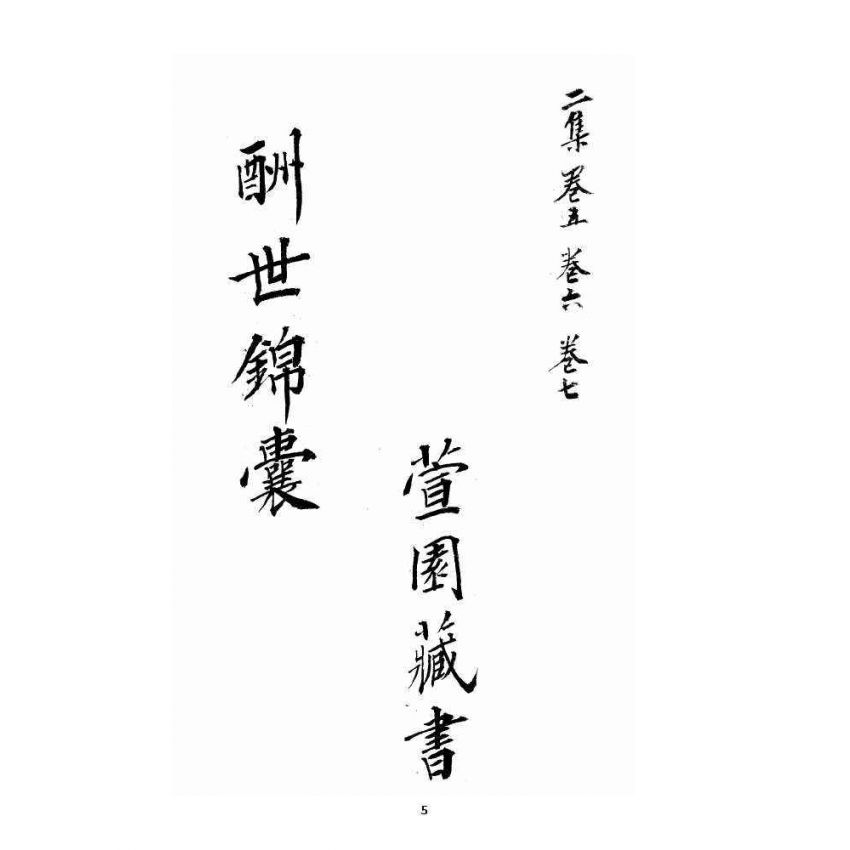 二集 卷五 卷六 卷七
萱園藏書
酬世錦囊
5